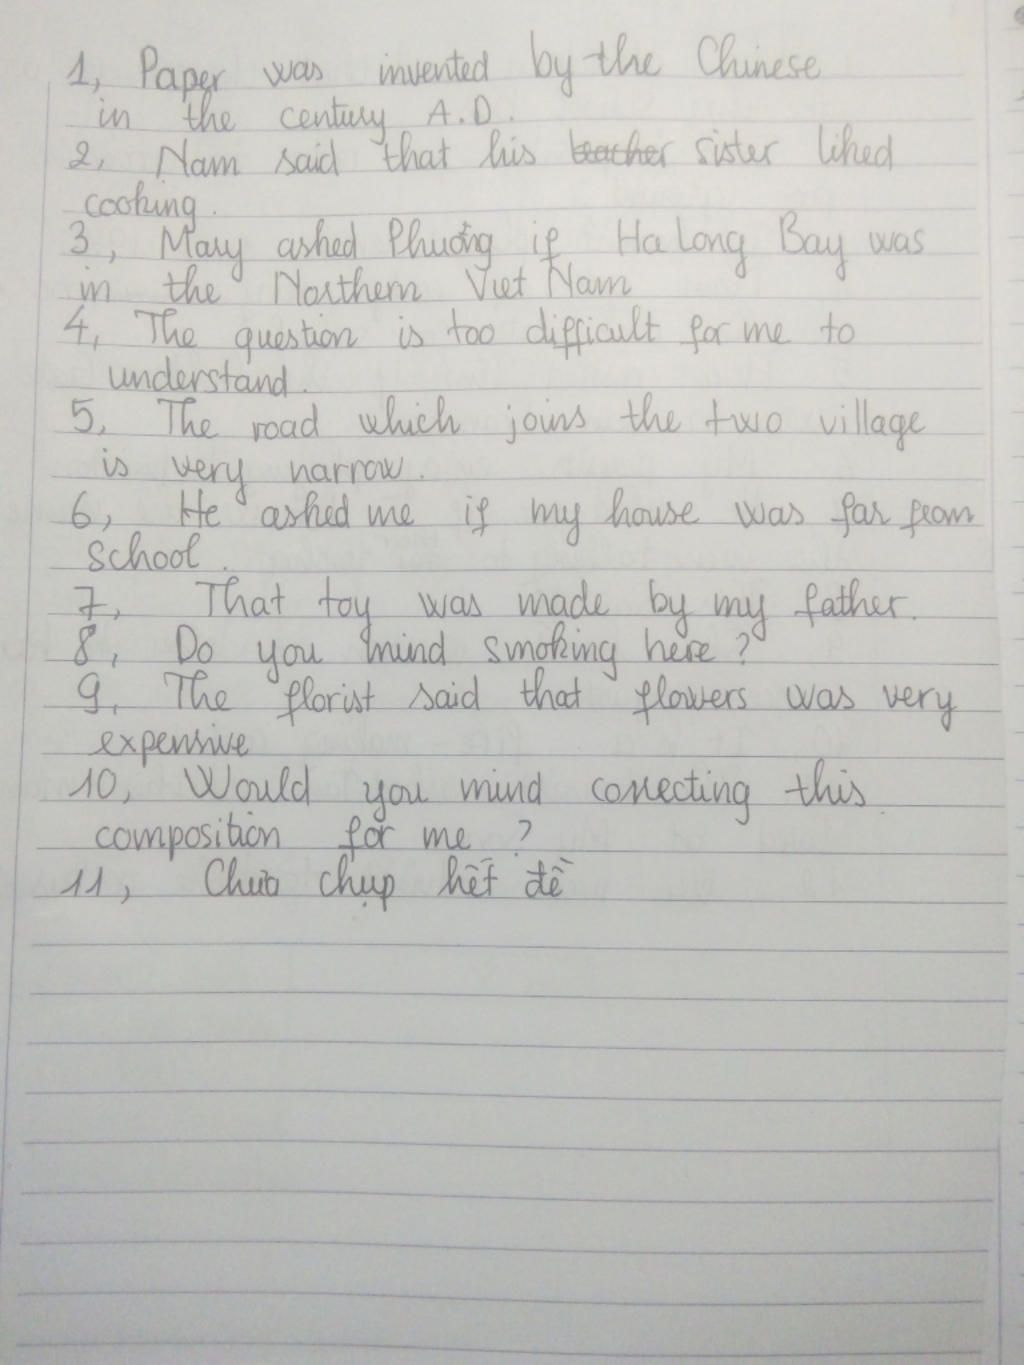 1, Paper was invented by the Chinese
in the century A.D.
2, Nam said that his teacher sister liked
cooking.
3, Mary asked Phương if Ha Long Bay was
in the Northern Viet Nam
4, The question is too difficult for me to
understand.
5, The road which joins the two village
is very narrow.
6, He asked me if my house was far from
school.
7, That toy was made by my father.
8, Do you mind smoking here?
9, The florist said that flowers was very
expensive
10, Would you mind correcting this
composition for me?
11, Chưa chụp hết đề